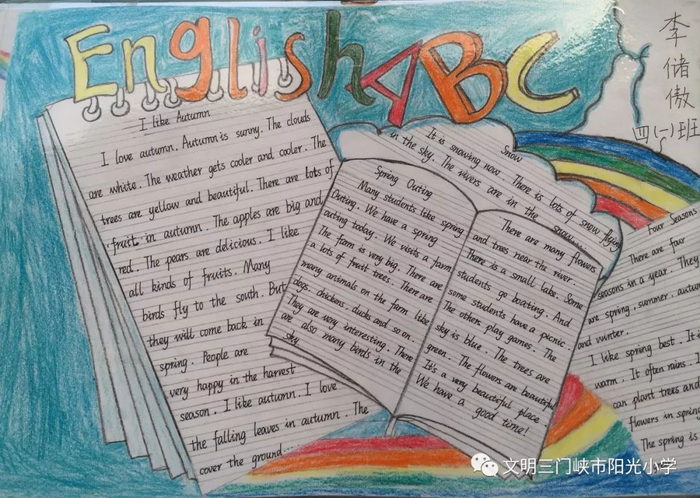 English ABC
李
储
傲
四(一)班
I like Autumn
I love autumn. Autumn is sunny. The clouds
are white. The weather gets cooler and cooler. The
trees are yellow and beautiful. There are lots of
fruit in autumn. The apples are big and
red. The pears are delicious. I like
all kinds of fruits. Many
birds fly to the south. But
they will come back in
spring. People are
very happy in the harvest
season. I like autumn. I love
the falling leaves in autumn. The
cover the ground
Snow
It is snowing now. There is lots of snow flying
in the sky. The rivers are in the snow
Spring Outing
Many students like spring
Outing. We have a spring
outing today. We visits a farm
The farm is very big. There are
a lots of fruit trees. There are
many animals on the farm like
dogs, chickens, ducks and so on.
They are very interesting. There
are also many birds in the
sky
There are many flowers
and trees near the river.
There is a small lake. Some
students go boating. And
some students have a picnic
The other play games. The
sky is blue. The trees are
green. The flowers are beautiful
It's a very beautiful place
We have a good time!
Four Seasons
There are four
seasons in a year. They
are spring, summer, autu
and winter.
I like spring best. It
warm. It often rains. I
can plant trees an
flowers in spring
The spring is
文明三门峡市阳光小学